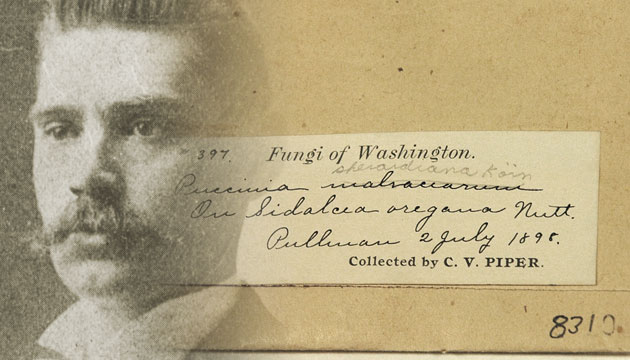 397. Fungi of Washington.
sherardiana Körn
Puccinia malvacearum
On Sidalcea oregana Nutt.
Pullman 2 July 1898.
Collected by C. V. PIPER.
8310.